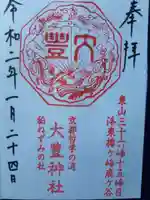 奉拝
東山三十六峰十五峰目
洛東椿ヶ峰鹿ヶ谷
大豊
京都哲学の道
大豊神社
狛ねずみの社
令和二年一月二十四日